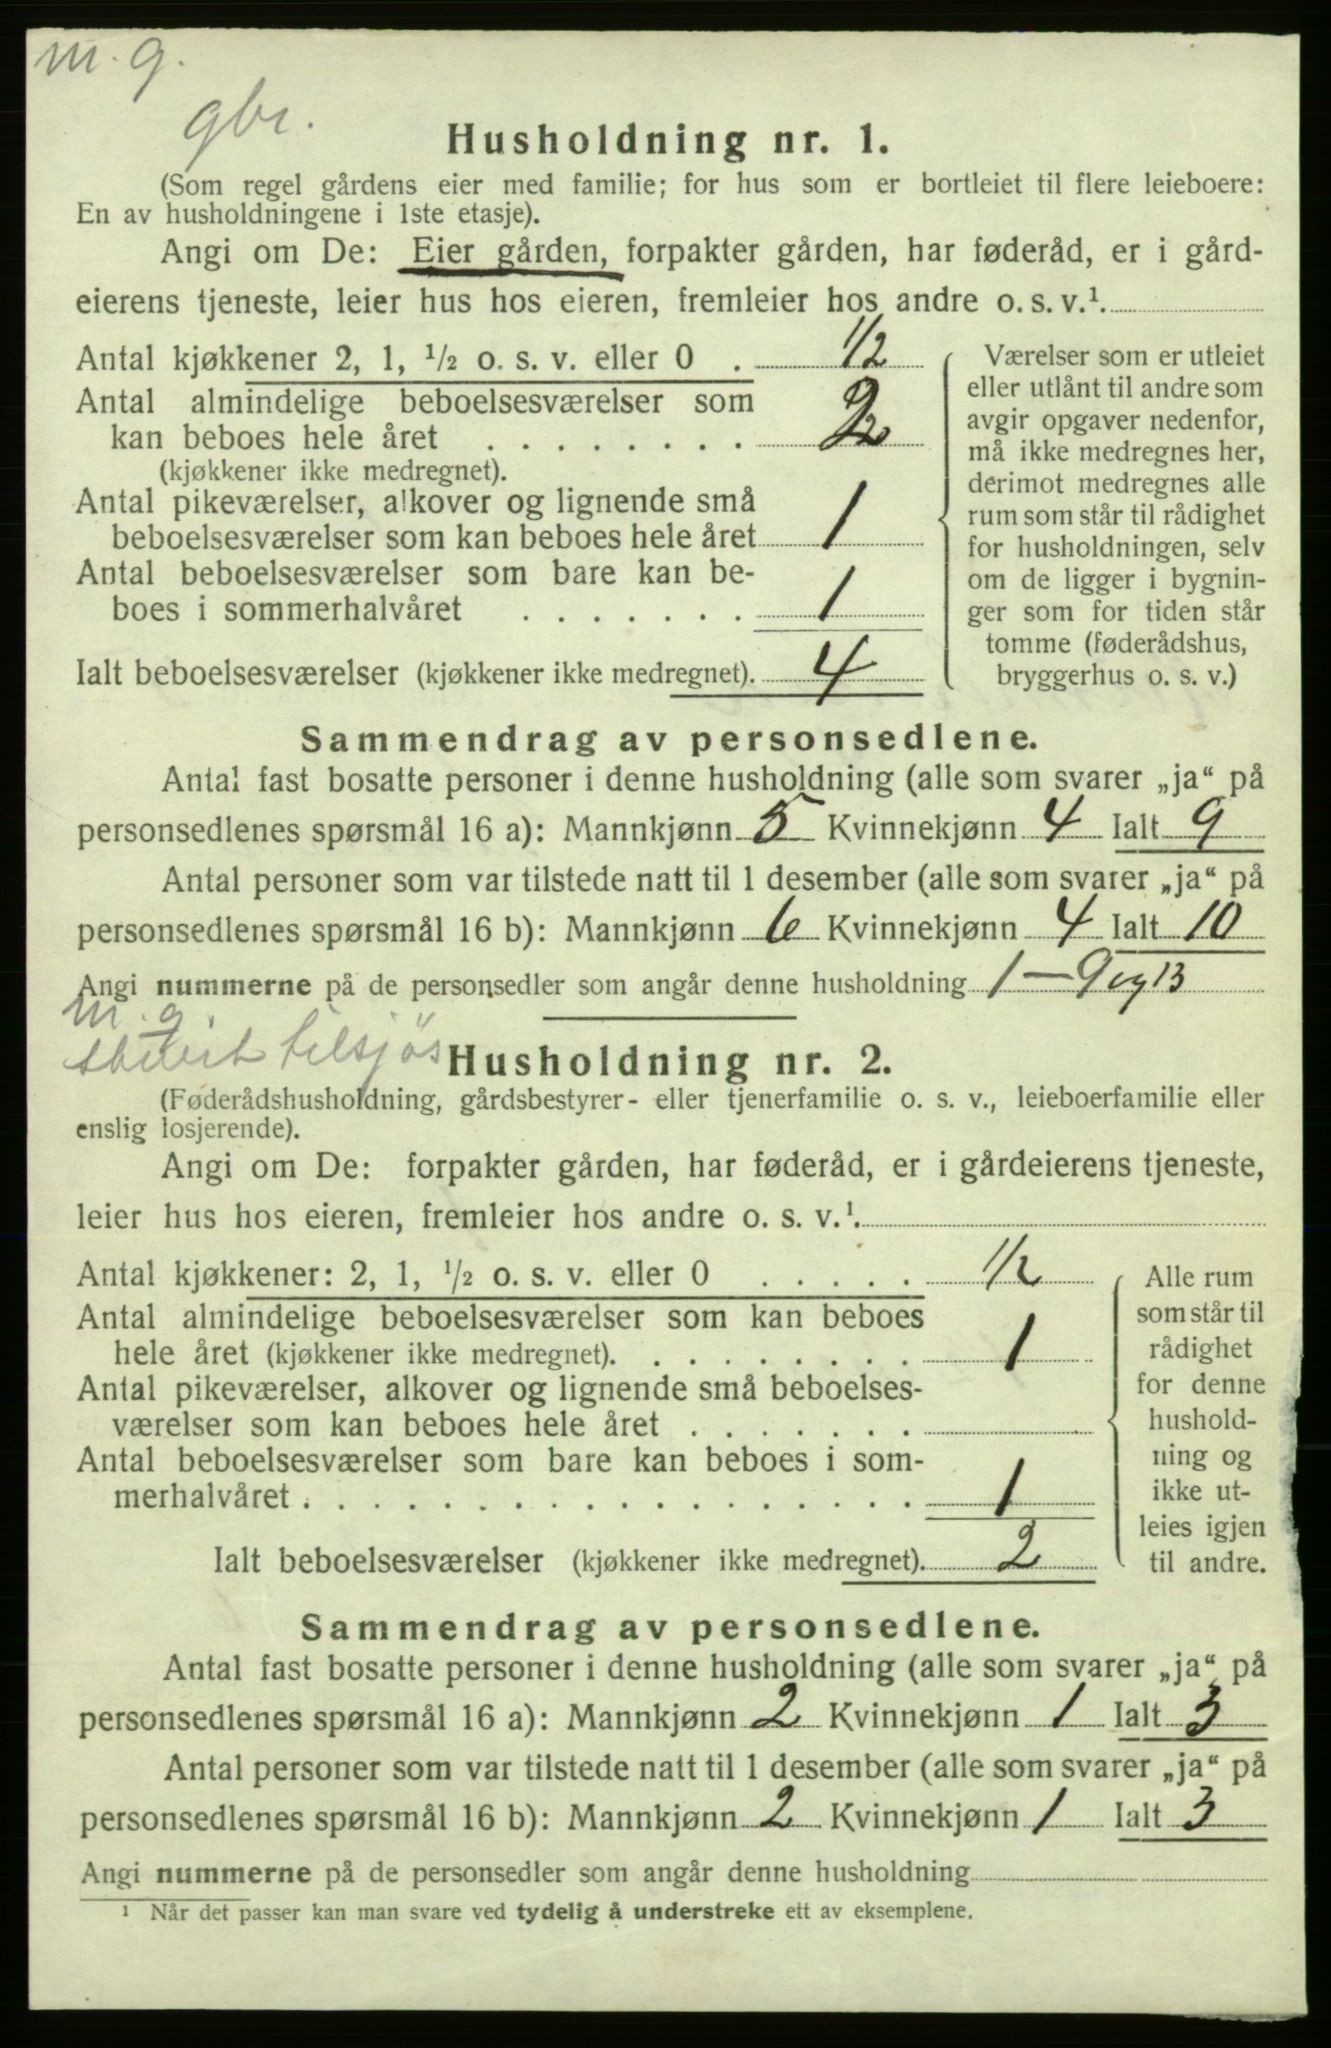 m. g.
gbr.
Husholdning nr. 1.
(Som regel gårdens eier med familie; for hus som er bortleiet til flere leieboere:
En av husholdningene i 1ste etasje).
Angi om De: Eier gården, forpakter gården, har føderåd, er i gård-
eierens tjeneste, leier hus hos eieren, fremleier hos andre o. s. v.¹.
Antal kjøkkener 2, 1, ½ o. s. v. eller 0 . 1/2
Antal almindelige beboelsesværelser som
kan beboes hele året . . . . . . . . 2
(kjøkkener ikke medregnet).
Antal pikeværelser, alkover og lignende små
beboelsesværelser som kan beboes hele året 1
Antal beboelsesværelser som bare kan be-
boes i sommerhalvåret . . . . . . . 1
Ialt beboelsesværelser (kjøkkener ikke medregnet). 4
Værelser som er utleiet
eller utlånt til andre som
avgir opgaver nedenfor,
må ikke medregnes her,
derimot medregnes alle
rum som står til rådighet
for husholdningen, selv
om de ligger i bygnin-
ger som for tiden står
tomme (føderådshus,
bryggerhus o. s. v.)
Sammendrag av personsedlene.
Antal fast bosatte personer i denne husholdning (alle som svarer „ja“ på
personsedlenes spørsmål 16 a): Mannkjønn 5 Kvinnekjønn 4 Ialt 9
Antal personer som var tilstede natt til 1 desember (alle som svarer „ja“ på
personsedlenes spørsmål 16 b): Mannkjønn 6 Kvinnekjønn 4 Ialt 10
Angi nummerne på de personsedler som angår denne husholdning 1 — 9 og 13
m. g.
tilsjøs
Husholdning nr. 2.
(Føderådshusholdning, gårdsbestyrer- eller tjenerfamilie o. s. v., leieboerfamilie eller
enslig losjerende).
Angi om De: forpakter gården, har føderåd, er i gårdeierens tjeneste,
leier hus hos eieren, fremleier hos andre o. s. v.¹.
Antal kjøkkener: 2, 1, ½ o. s. v. eller 0 . . . . . 1/2
Antal almindelige beboelsesværelser som kan beboes
hele året (kjøkkener ikke medregnet). . . . . . . . . 1
Antal pikeværelser, alkover og lignende små beboelses-
værelser som kan beboes hele året . . . . . . .
Antal beboelsesværelser som bare kan beboes i som-
merhalvåret . . . . . . . . . . . . . . . . . . 1
Ialt beboelsesværelser (kjøkkener ikke medregnet). 2
Alle rum
som står til
rådighet
for denne
hushold-
ning og
ikke ut-
leies igjen
til andre.
Sammendrag av personsedlene.
Antal fast bosatte personer i denne husholdning (alle som svarer „ja“ på
personsedlenes spørsmål 16 a): Mannkjønn 2 Kvinnekjønn 1 Ialt 3
Antal personer som var tilstede natt til 1 desember (alle som svarer „ja“ på
personsedlenes spørsmål 16 b): Mannkjønn 2 Kvinnekjønn 1 Ialt 3
Angi nummerne på de personsedler som angår denne husholdning
¹ Når det passer kan man svare ved tydelig å understreke ett av eksemplene.